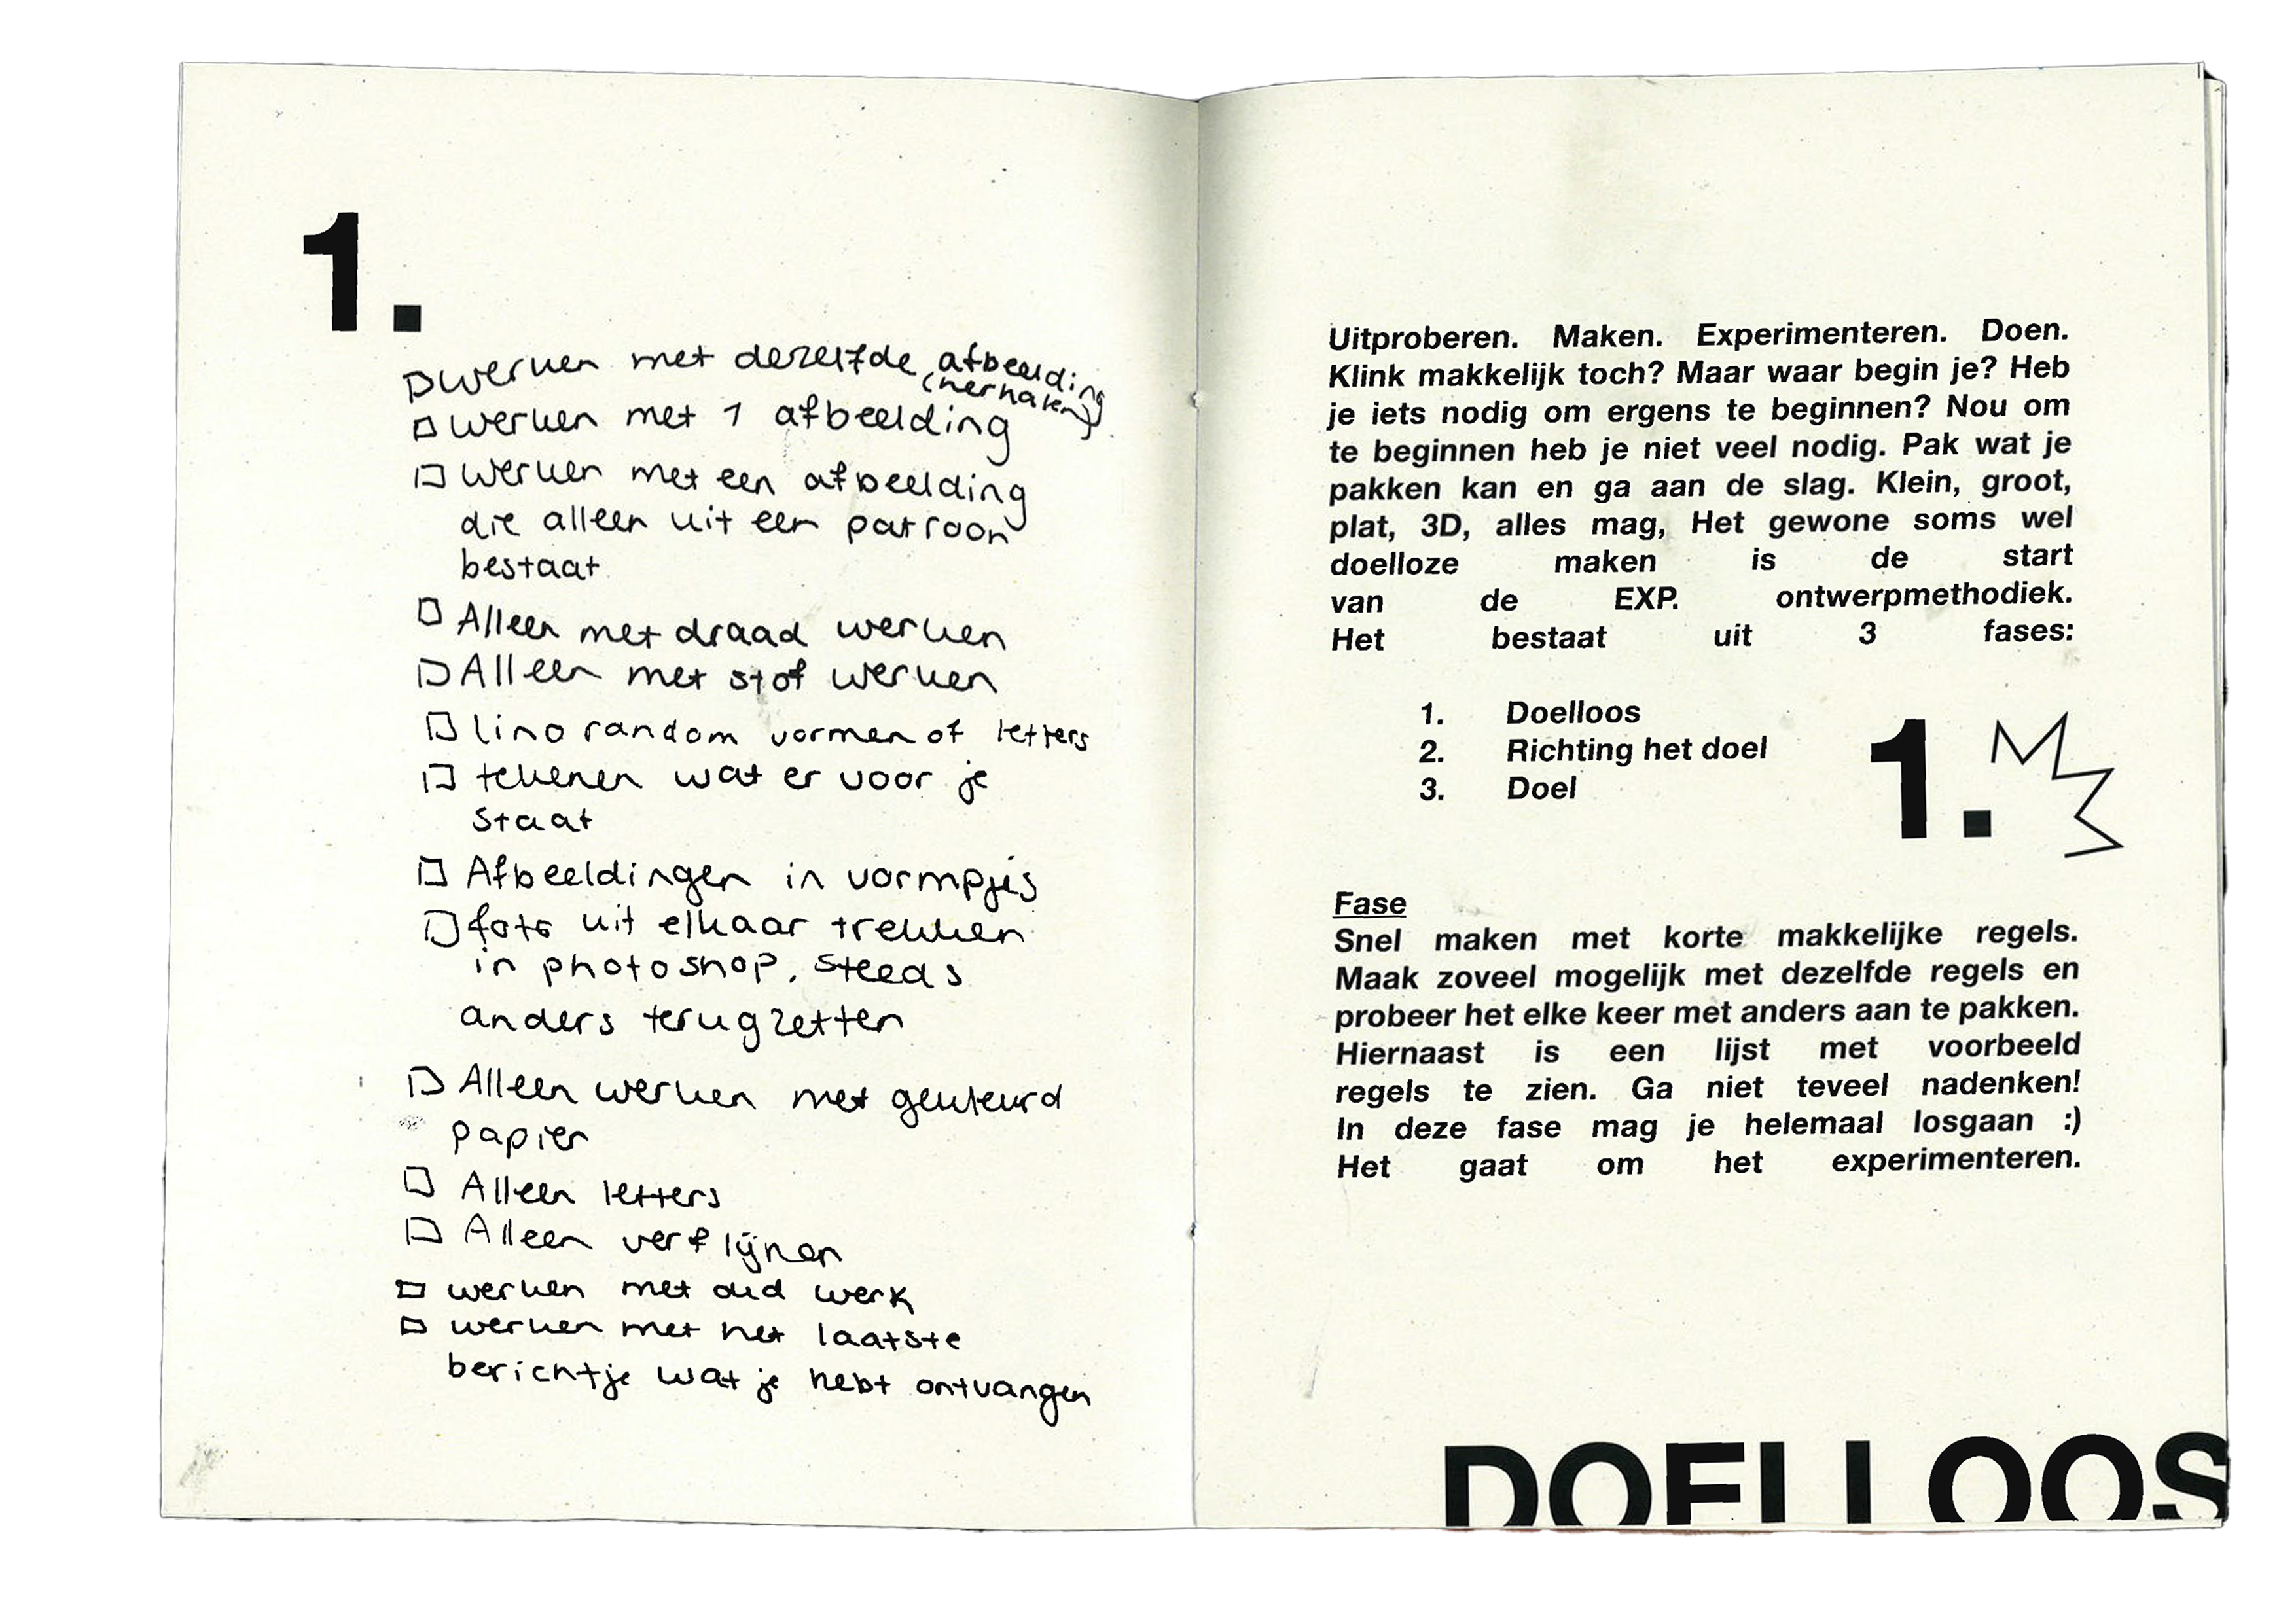 1.
☐ werken met dezelfde afbeelding
(herhalen)
☐ werken met 1 afbeelding
☐ werken met een afbeelding
die alleen uit een patroon
bestaat
☐ Alleen met draad werken
☐ Alleen met stof werken
☐ lino random vormen of letters
☐ tekenen wat er voor je
staat
☐ Afbeeldingen in vormpjes
☐ foto uit elkaar trekken
in photoshop, steeds
anders terugzetten
☐ Alleen werken met gekleurd
papier
☐ Alleen letters
☐ Alleen verf lijnen
☐ werken met oud werk
☐ werken met het laatste
berichtje wat je hebt ontvangen
Uitproberen. Maken. Experimenteren. Doen.
Klink makkelijk toch? Maar waar begin je? Heb
je iets nodig om ergens te beginnen? Nou om
te beginnen heb je niet veel nodig. Pak wat je
pakken kan en ga aan de slag. Klein, groot,
plat, 3D, alles mag, Het gewone soms wel
doelloze maken is de start
van de EXP. ontwerpmethodiek.
Het bestaat uit 3 fases:
1. Doelloos
2. Richting het doel
3. Doel
1.
Fase
Snel maken met korte makkelijke regels.
Maak zoveel mogelijk met dezelfde regels en
probeer het elke keer met anders aan te pakken.
Hiernaast is een lijst met voorbeeld
regels te zien. Ga niet teveel nadenken!
In deze fase mag je helemaal losgaan :)
Het gaat om het experimenteren.
DOELLOOS